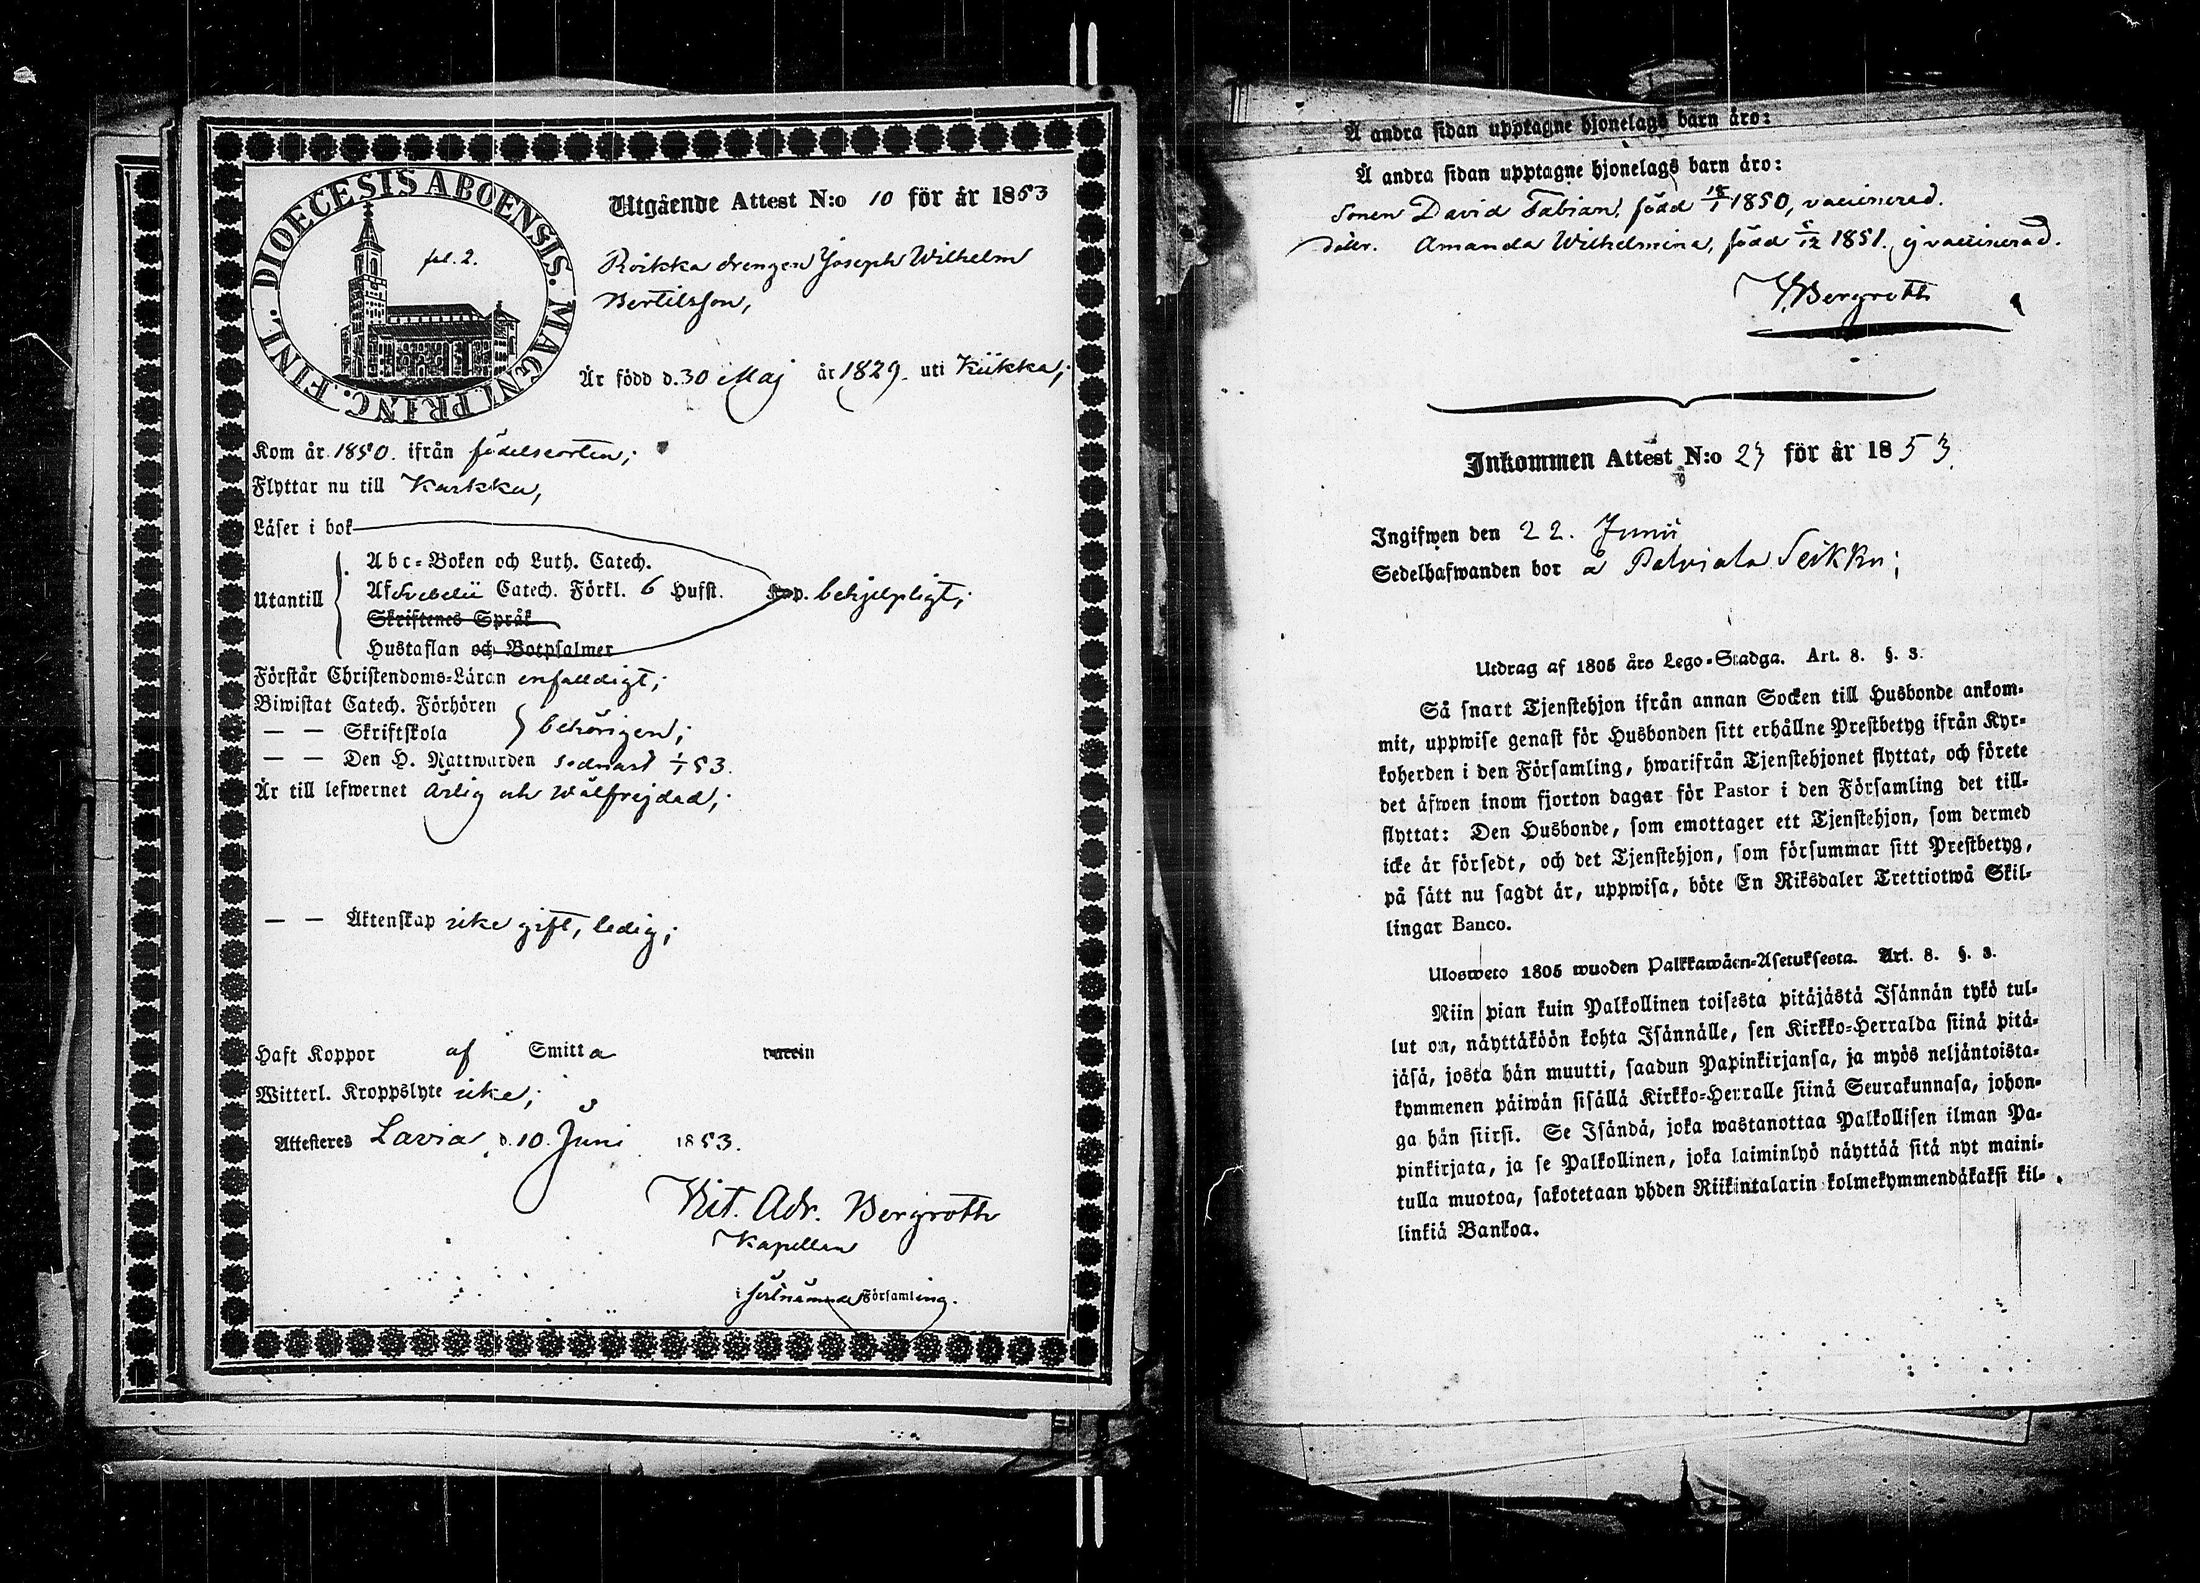 DIOECESIS ABOENSIS. MAGNI PRINC. FINL.
fol. 2.
Utgående Attest N:o 10 för år 1853
Roikka drengen Joseph Wilhelm
Bertilsson,
Är född d. 30 Maj år 1829. uti Kiikka;
Kom år 1850. ifrån födelseorten;
Flyttar nu till Karkku,
Läser i bok
Utantill
Abc-Boken och Luth. Catech.
Af Svebelii Catech. Förkl. 6 Hufst. Kap. behjelpligt;
Skriftenes Språk
Hustaflan och Botpsalmer
Förstår Christendoms-Läran enfalldigt;
Biwistat Catech. Förhören
— — Skriftskola } behörigen;
— — Den H. Nattwarden sednast 1/1 53.
Är till lefwernet ärlig och wälfrejdad;
— — Äktenskap icke gift, ledig;
Haft Koppor af Smitta vaccin
Witterl. Kroppslyte icke;
Attesteras Lavia, d. 10. Juni 1853.
Vict. Adr. Bergroth
Kapellan
i förenämnde Församling.
Å andra sidan upptagne hjonelags barn äro:
Å andra sidan upptagne hjonelags barn äro:
Sonen David Fabian, född 18/1 1850, vaccinerad.
Dotter. Amanda Wilhelmina, född 5/12 1851. ej vaccinerad.
V. Bergroth
Inkommen Attest N:o 23 för år 1853.
Ingifwen den 22. Junii
Sedelhafwanden bor å Palviala Seikku;
Utdrag af 1805 års Lego-Stadga. Art. 8. §. 3.
Så snart Tjenstehjon ifrån annan Socken till Husbonde ankom-
mit, uppwise genast för Husbonden sitt erhållne Prestbetyg ifrån Kyr-
koherden i den Församling, hwarifrån Tjenstehjonet flyttat, och förete
det äfwen inom fjorton dagar för Pastor i den Församling det till-
flyttat: Den Husbonde, som emottager ett Tjenstehjon, som dermed
icke är försedt, och det Tjenstehjon, som försummar sitt Prestbetyg,
på sätt nu sagdt är, uppwisa, böte En Riksdaler Trettiotwå Skil-
lingar Banco.
Ulosweto 1805 wuoden Palkkawäen-Asetuksesta. Art. 8. §. 3.
Niin pian kuin Palkollinen toisesta pitäjästä Isännän tykö tul-
lut on, näyttäköön kohta Isännälle, sen Kirkko-Herralda siinä pitä-
jäsä, josta hän muutti, saadun Papinkirjansa, ja myös neljäntoista-
kymmenen päiwän sisällä Kirkko-Herralle siinä Seurakunnasa, johon-
ga hän siirsi. Se Isändä, joka wastanottaa Palkollisen ilman Pa-
pinkirjata, ja se Palkollinen, joka laiminlyö näyttää sitä nyt maini-
tulla muotoa, sakotetaan yhden Riikintalarin kolmekymmendäkaksi kil-
linkiä Bankoa.